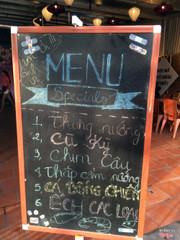 MENU
Special
1. Thùng nướng
2. Cù Kỳ
3. Chim Câu
4. Thập cẩm nướng
5. CÁ BỐNG CHIÊN
6. ẾCH CÁC LOẠI